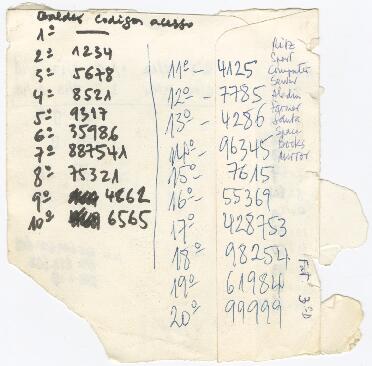 codigos acesso
1º —
2º 1234
3º 5678
4º 8521
5º 9317
6º 35986
7º 887541
8º 75321
9º 4862
10º 6565
11º - 4125
12º - 7785
13º - 4286
14º - 96345
15º - 7615
16º - 55369
17º 428753
18º 98254
19º 61984
20º 99999
Ritz
Sport
Computer
Aladin
Farmer
Santa
Space
Books
Mirror
3ºD